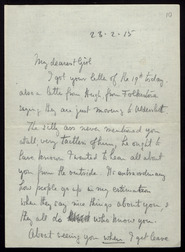 28-2-15
My dearest Girl
I got your letter of the 19th today
also a letter from Hugh from Folkestone
saying they are just moving to Aldershot
The Silly ass never mentioned you
at all, very tactless of him, he ought to
have known I wanted to hear all about
you from the outside. It's extraordinary
how people go up in my estimation
when they say nice things about you &
they all do who know you.
About seeing you when I get leave